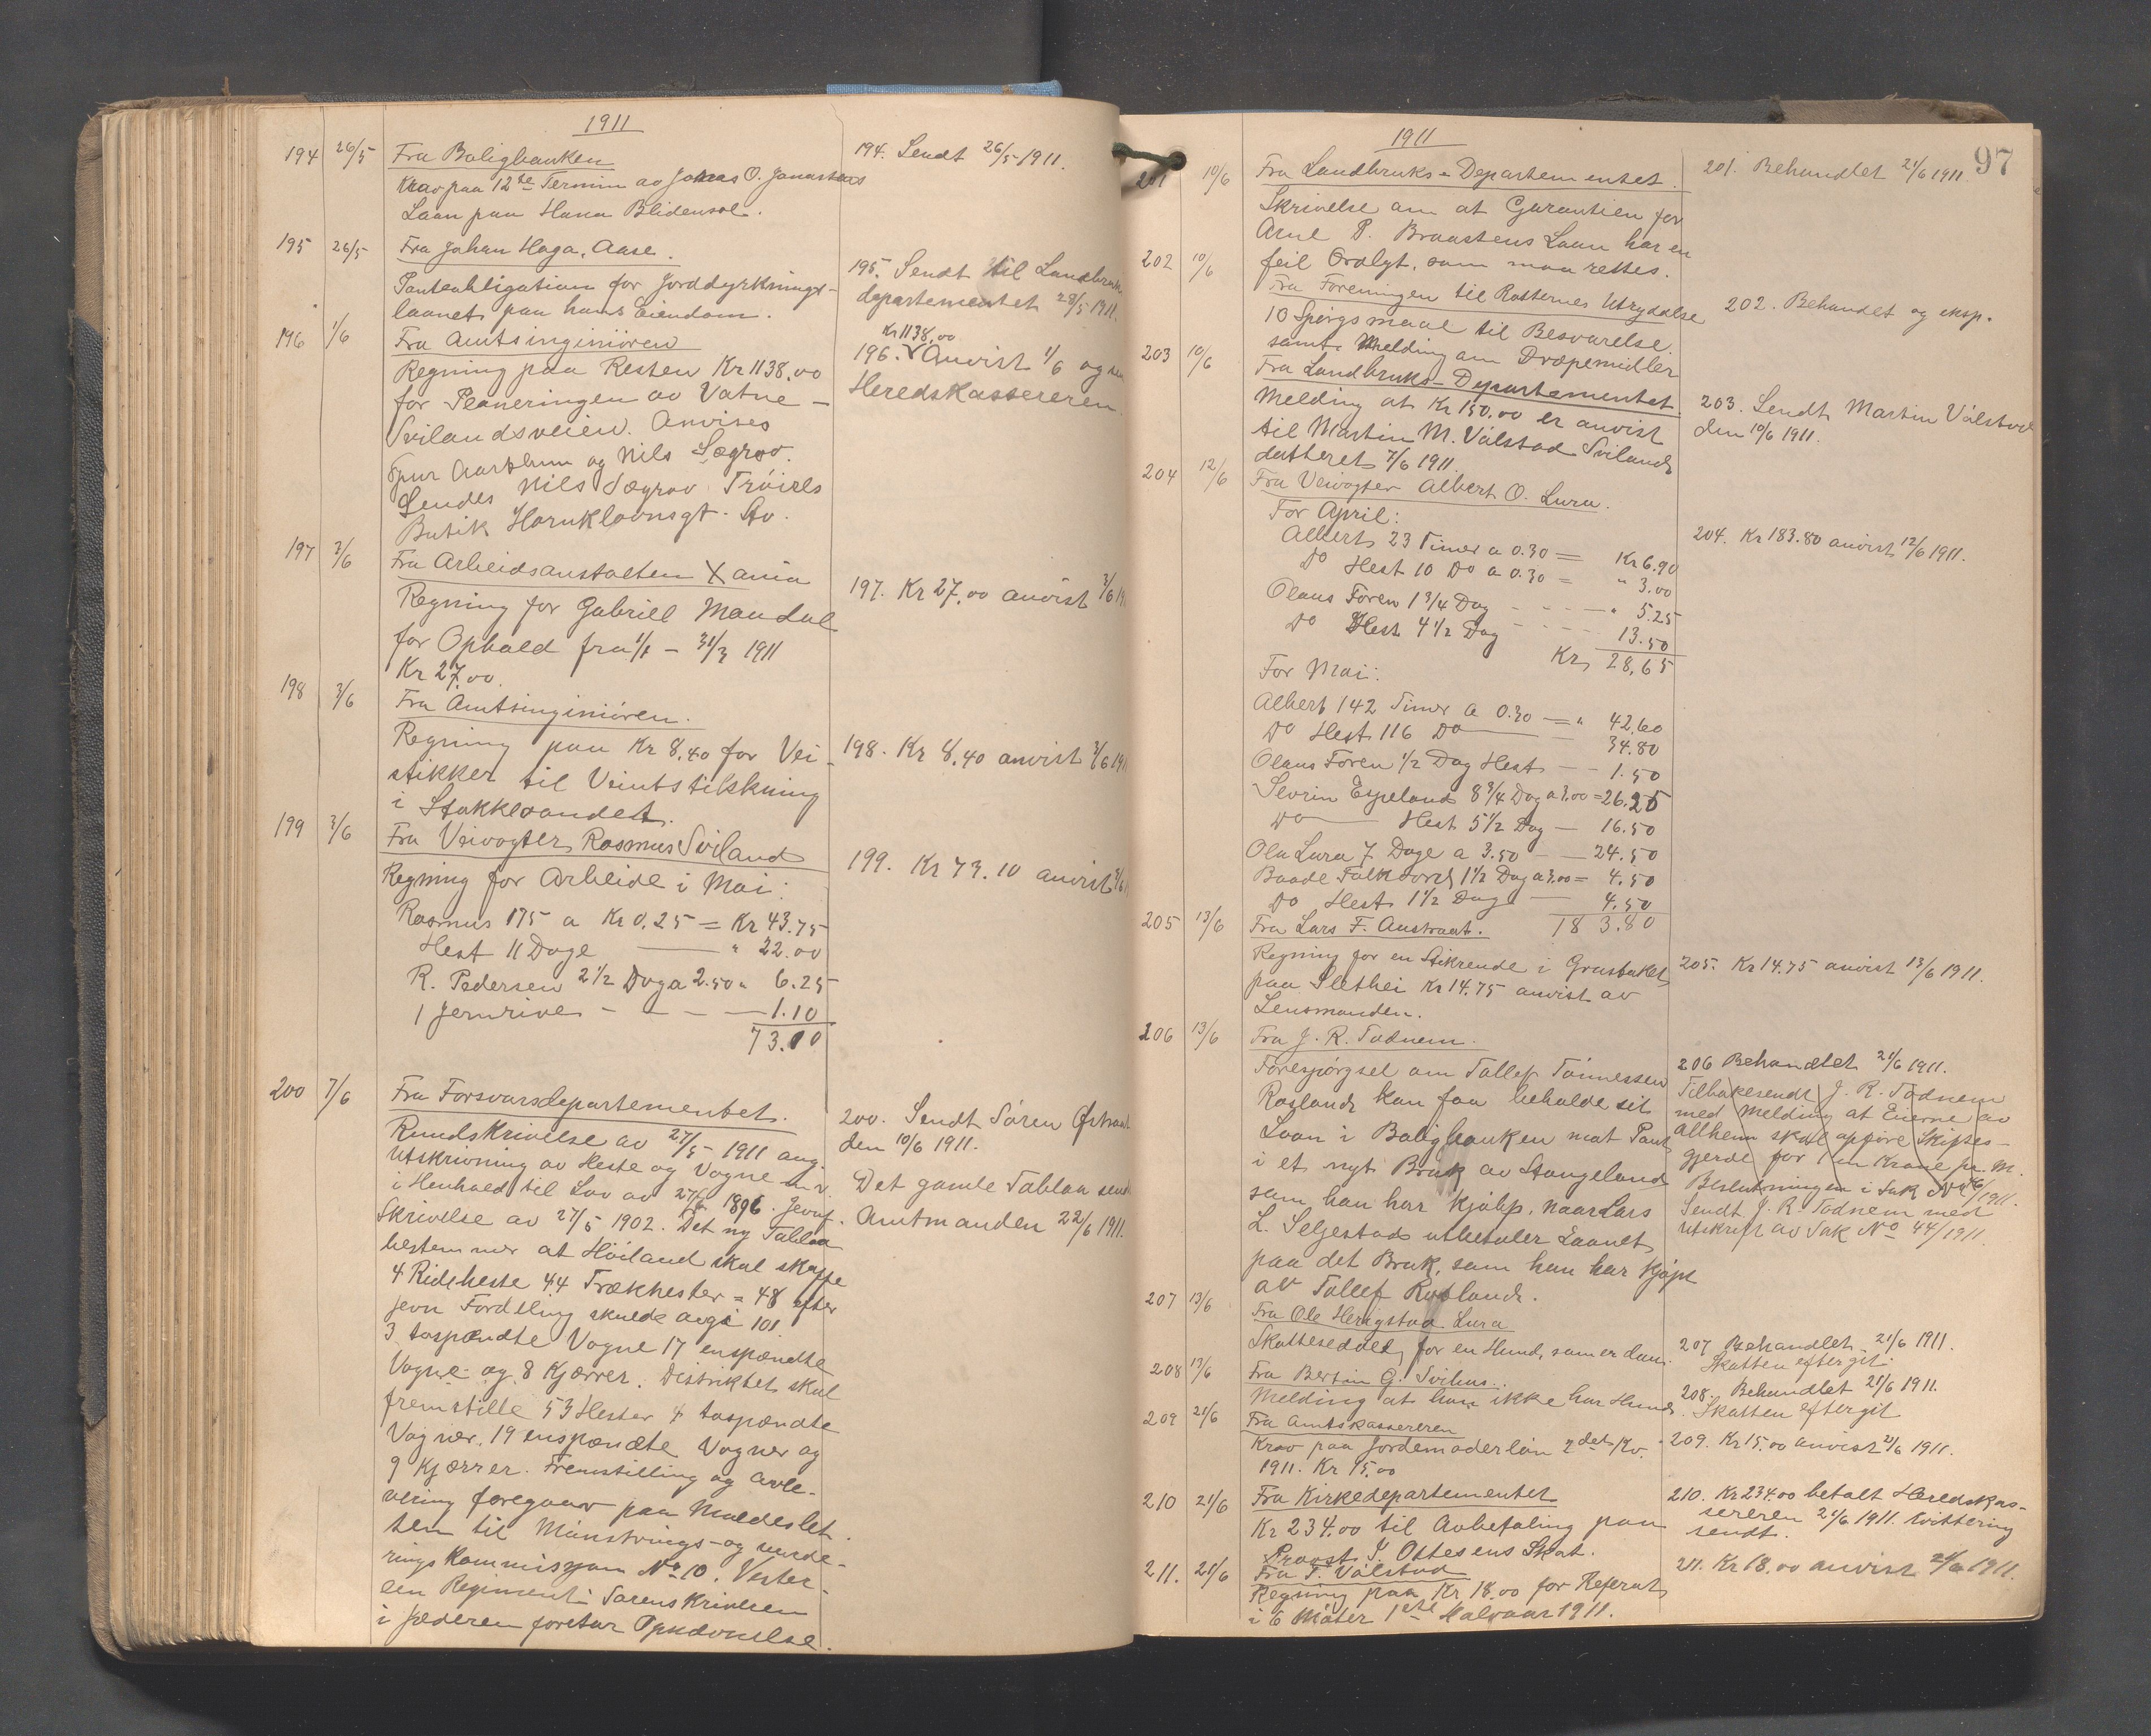 1911
194 26/5 Fra Boligbanken
Krav paa 12te Termin av Jonas O. Jonassens
Laan paa Hana Blidensol.
194. Sendt 26/5 1911.
195 26/5 Fra Johan Haga, Aase.
Panteobligation for Jorddyrknings-
laanet paa hans Eiendom.
195. Sendt til Landbruks
departementet 28/5 1911.
196 1/6 Fra Amtsingeniøren
Regning paa Resten Kr 1138,00
for Planeringen av Vatne -
Svilandsveien. Anvises
og Nils Sægrov.
Sendes Nils Sægrov
Butik Harukløvnsgt. Stv.
Kr 1138,00
196. Anvist 1/6 og
Heredskassereren.
197 3/6 Fra Arbeidsanstalten Xania
Regning for Gabriel Mandal
for Ophold fra 1/1 - 31/3 1911
Kr 27,00.
197. Kr 27,00 anvist 3/6 19
198 3/6 Fra Amtsingeniøren.
Regning paa Kr 8,40 for Vei-
stikker til
i Stokkevandet.
198. Kr 8,40 anvist 3/6 191
199 3/6 Fra Veivogter Rasmus Sviland
Regning for Arbeide i Mai:
Rasmus 175 a Kr 0,25 = Kr 43.75
Hest 11 Dage — " 22.00
R. Pedersen 2 1/2 Dag a 2.50 " 6.25
1 Jernrive - - - 1.10
73.10
199. Kr 73.10 anvist 3/6
200 7/6 Fra Forsvarsdepartementet.
Rundskrivelse av 27/5 1911 ang.
Utskrivning av Heste og Vogne m.v.
i Henhold til Lov av 1896. Jevnf.
Skrivelse av 27/5 1902. Det ny Tablaa
bestemmer at Höiland skal skaffe
4 Rideheste 44 Trækhester = 48 efter
jevn Fordeling skulde avgi 101.
3 tospændte Vogne 17 enspændte
Vogne og 8 Kjærrer. Distriktet skal
fremstille 53 Hester 4 tospændte
Vogner. 19 enspændte Vogner og
9 Kjærrer. Fremstilling og avle-
vering foregaar paa Maldeslet-
ten til Mönstrings- og vurde-
rings Kommisjon No 10. Vester-
len Regiment. Sorenskriveren
i Jæderen foretar Opnævnelse.
200. Sendt Sören Østraat
den 10/6 1911.
Det gamle Tablaa sendt
Amtmanden 22/6 1911.
97
1911
201 10/6 Fra Landbruks-Departementet.
Skrivelse om at Garantien for
Arne P. Braastens Laan har en
feil Ordlyt, som maa rettes.
201. Behandlet 21/6 1911.
202 10/6 Fra Foreningen til Rotternes Utryddelse
10 Spörgsmaal til Besvarelse
samt Melding om Dræpemidler
202. Behandlet og eksp.
203 10/6 Fra Landbruks-Departementet.
Melding at Kr 150.00 er anvist
til Martin M. Válstad Sviland
datteret 7/6 1911.
203. Sendt Martin Válstad
den 10/6 1911.
204 12/6 Fra Veivogter Albert O. Lura.
For April:
Albert 23 Timer a 0.30 = Kr 6.90
Do Hest 10 Do a 0.30 = " 3.00
Olaus Foren 1 3/4 Dag - - - " 5.25
Do Hest 4 1/2 Dag - - - 13.50
Kr 28,65
For Mai:
Albert 142 Timer a 0.30 — " 42,60
Do Hest 116 Do — 34.80
Olaus Foren 1/2 Dag Hest — 1.50
Sevrin Espeland 8 3/4 Dag a 3.00 = 26.25
Do — Hest 5 1/2 Dag — 16.50
Ola Lura 7 Dage a 3.50 — 24.50
Baade 1 1/2 Dag a 3.00 = 4.50
Do Hest 1 1/2 Dag — 4.50
183.80
204. Kr 183.80 anvist 12/6 1911.
205 13/6 Fra Lars F. Austraat.
Regning for en Stikrende i Grustaket
paa Slethei Kr 14.75 anvist av
Lensmanden.
205. Kr 14.75 anvist 13/6 1911.
206 13/6 Fra J. R. Todnem.
Forespörgsel om Tollef Tönnessen
Rosland kan faa beholde sit
Laan i Boligbanken mot Pant
i et nyt Bruk av Stangeland
som han har kjöbp, naar Lars
L. Seljestad utbetaler Laanet
paa det Bruk, som han har kjöpt
av Tollef Rosland.
206 Behandlet 21/6 1911.
Tilbakesendt J. R. Todnem
med Melding at Eierne av
allhem skal opföre Skiftes-
gjerde for 1 en Krone pr. M.
Beslutningen i Sak No /1911.
Sendt J. R. Todnem med
utskrift av Sak No 44/1911.
207 13/6 Fra Ole Herigstad Lura
Skatteseddel for en Hund, som er död.
207 Behandlet 21/6 1911.
Skatten eftergit.
208 13/6 Fra Bertin G. Svihus.
Melding at han ikke har Hund.
208. Behandlet 21/6 1911.
Skatten eftergit
209 21/6 Fra Amtskassereren
Krav paa Jordemoderlön 2det Kv.
1911. Kr 15,00
209. Kr 15,00 anvist 21/6 1911.
210 21/6 Fra Kirkedepartementet
Kr 234.00 til Avbetaling paa
Provst J. Ottesens Skat.
210. Kr 234.00 betalt Heredskas-
sereren 21/6 1911. Kvittering
sendt.
211. 21/6 Fra T. Válstad
Regning paa Kr 18.00 for Referat
i 6 Möter 1ste Halvaar 1911.
211. Kr 18.00 anvist 21/6 1911.